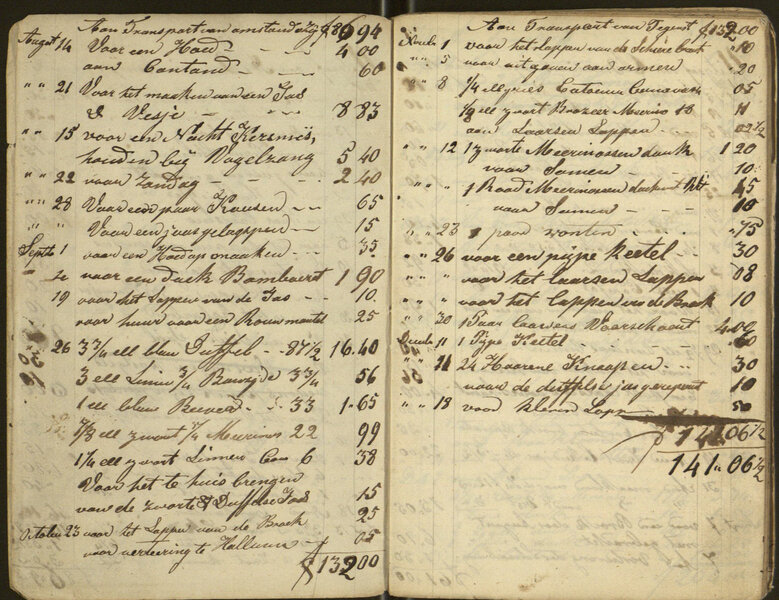 Aan Transport van
August 14 Voor een Hoed - - - 4 00
aan Contand - - - 60
" " 21 Voor het maaken van een Jas
& Vesje - - - - 8 83
" " 15 voor een Nacht Kermis,
houden bij Vogelzang 5 40
" " 22 voor Zondag - - - 2 40
" " 28 Voor een paar Kousen - - 65
" " Voor een jas gelappen - - 15
Septb 1 voor een Hoed op maaken - - 35
voor een doek 1 90
19 voor het Lappen van de Jas - - 10
voor huur voor een Rouw mantel 25
" 26 3 3/4 ell blau Duffel - 87 1/2 16.40
3 ell Linnen 3/4 3 3/4 56
1 ell blau Bever - - 33 1-65
7/8 ell zwart 3/4 Meerinos 22 99
1 1/4 ell zwart Linnen 6 38
Voor het te huis brengen
van de zwarte & Duffelse Jas 15
October 23 voor het Lappen van de Broek 25
voor verteering te Hallum - 05
ƒ 132 00
Aan Transport van ƒ 132.00
1 voor het Lappen van de broek " 10
" " 5 voor uitgaven aan armen .20
" " 8 1/4 Catoen 05
1/8 ell zwart Meerinos 18 11
aan Laarsen Lappen - - 02 1/2
" " 12 1 zwarte Meerinossen doek 1 20
voor Somen - - 10
" " 1 Rood Meerinossen 45
voor Somen - - 10
" " 23 1 paar " 75
" " 26 voor een pijpe Keetel - - 30
" " " voor het laarsen Lappen 08
" " " voor het Lappen van de Broek 10
" " 30 1 Paar laarsens Voorschoent 4.00
11 1 Pijpe Keetel - - 60
" " 21 24 Hoorene Knoopen - - 30
voor de duffelse jas 10
" " 18 voor 50
ƒ 141.06 1/2
141 " 06 1/2